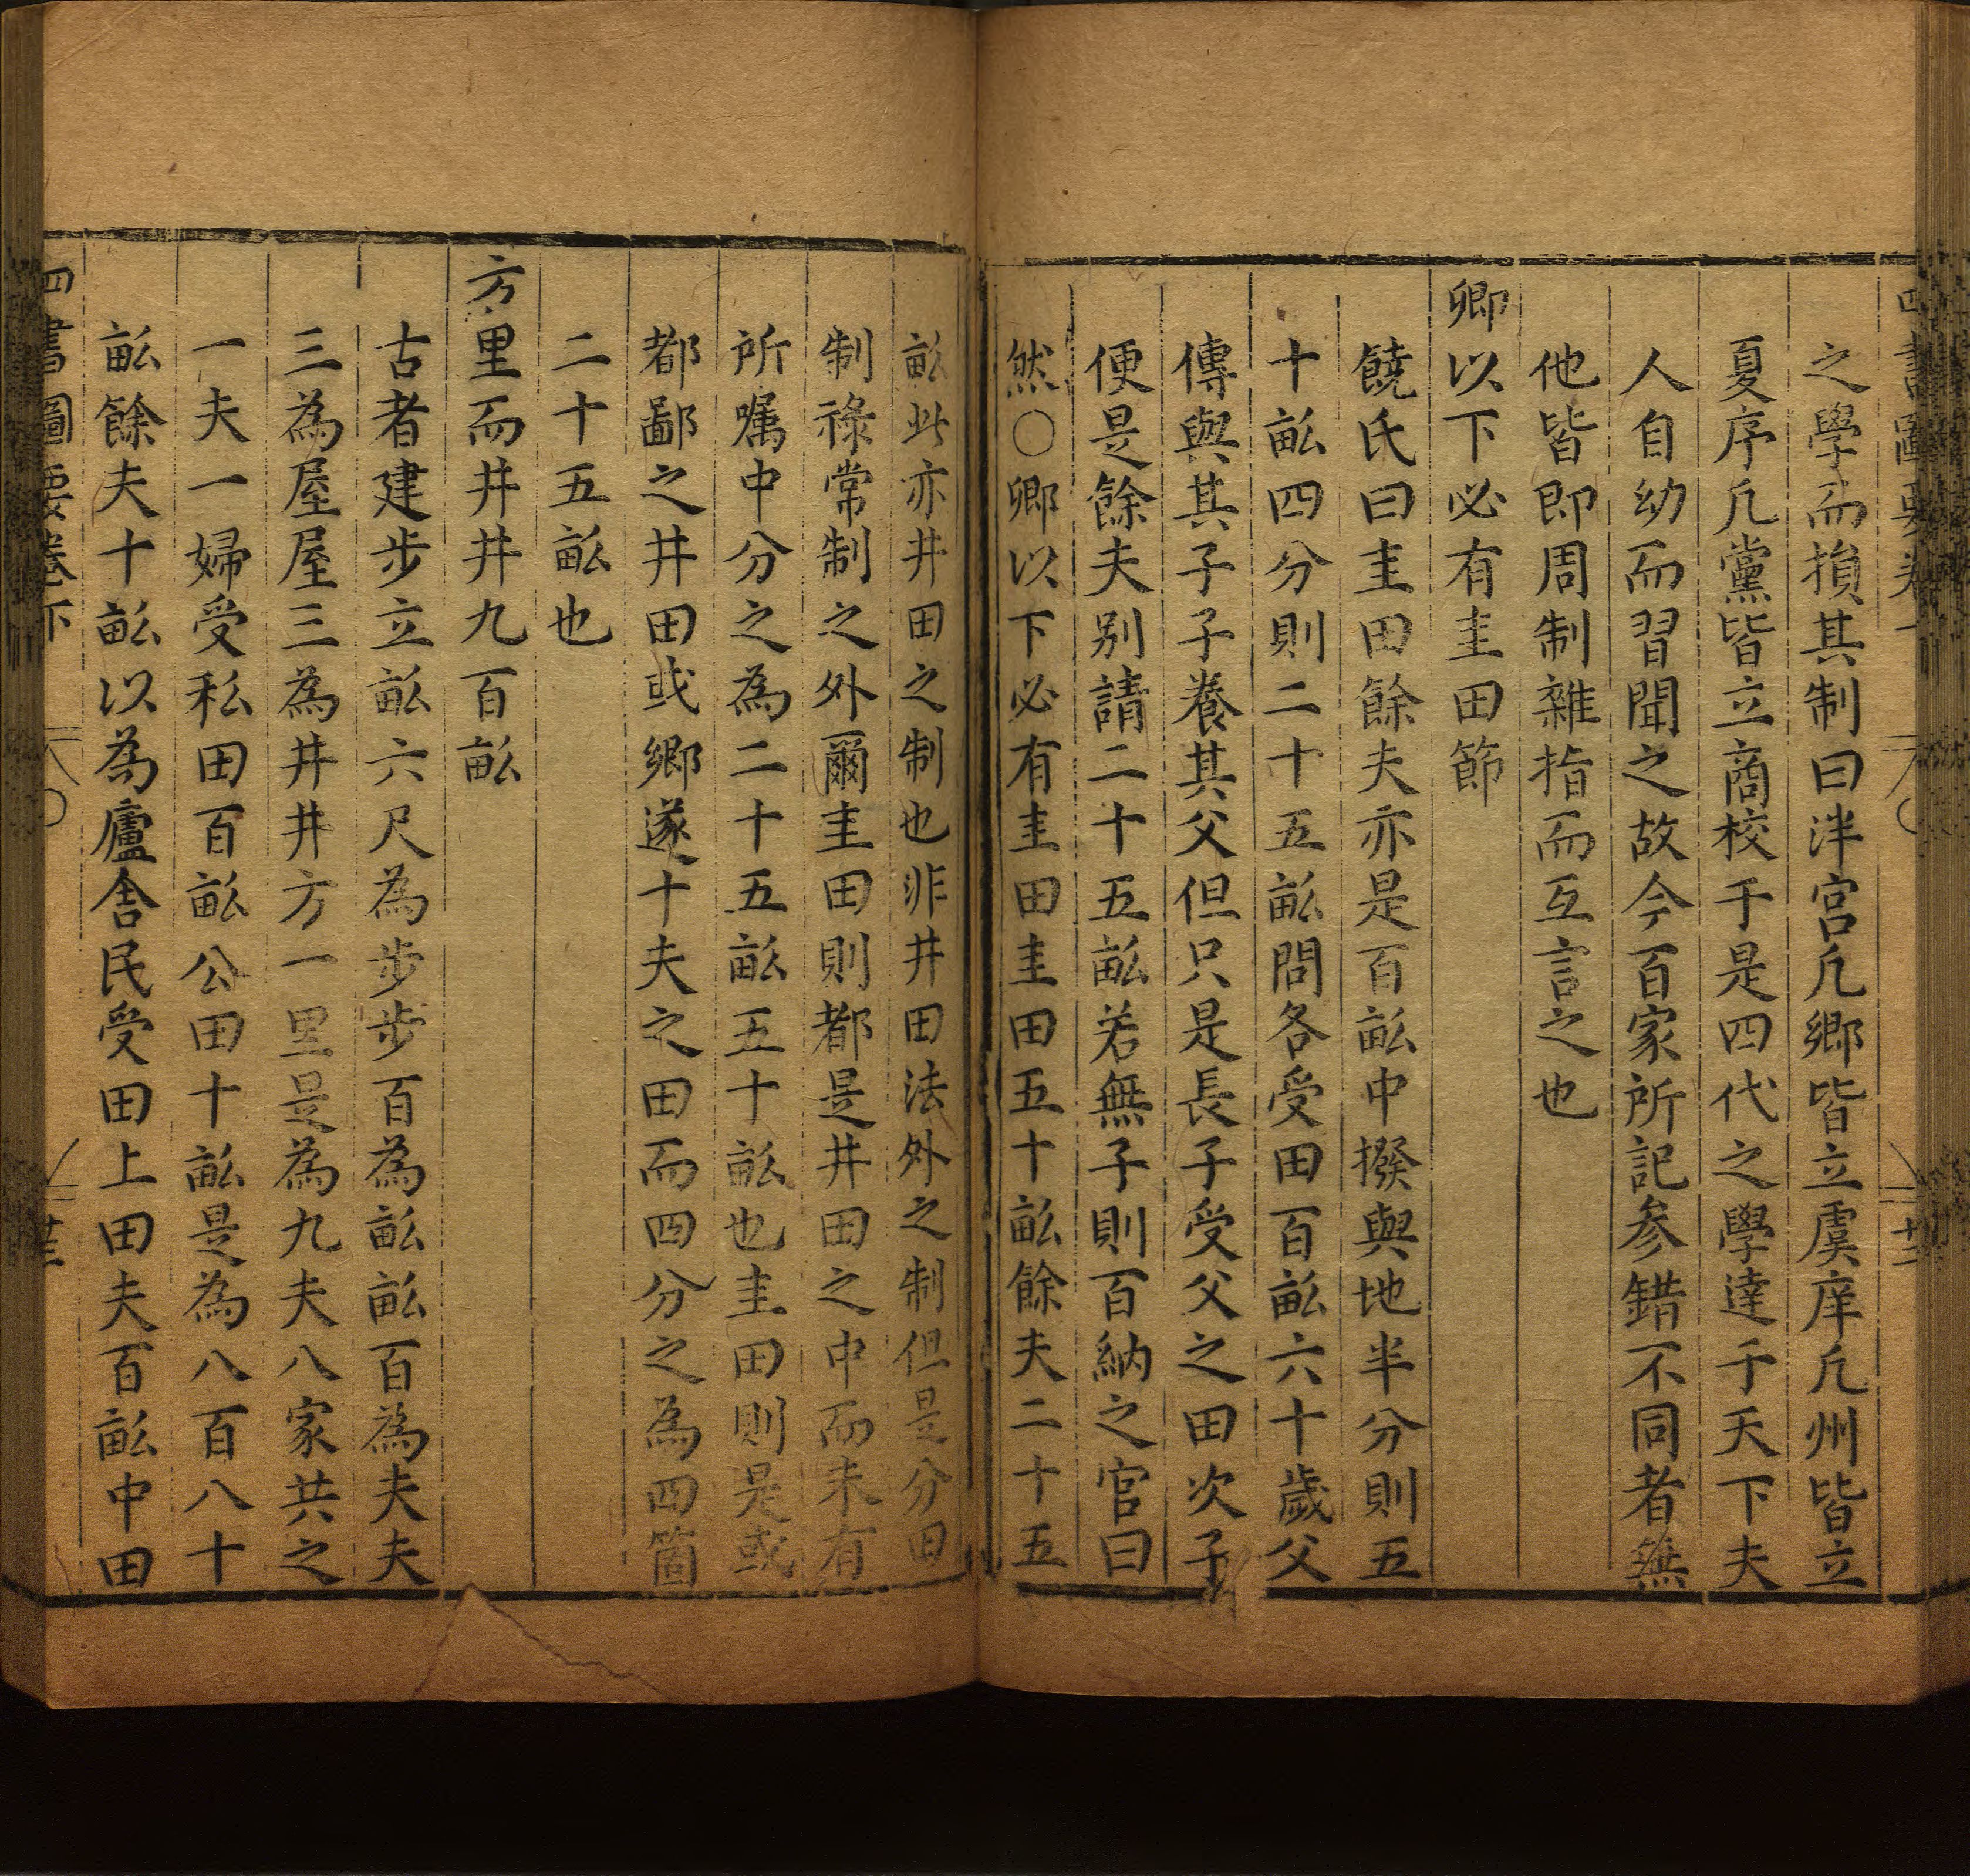 之學而損其制曰泮宮凢鄉皆立虞庠凢州皆立
夏序凢黨皆立商校于是四代之學達于天下夫
人自幼而習聞之故今百家所記参錯不同者無
他皆即周制雜指而互言之也
卿以下必有圭田節
饒氏曰圭田餘夫亦是百畝中撥與地半分則五
十畝四分則二十五畝問各受田百畝六十歲父
傳與其子子養其父但只是長子受父之田次子
便是餘夫别請二十五畝若無子則百納之官曰
然○卿以下必有圭田圭田五十畝餘夫二十五
畝此亦井田之制也非井田法外之制但是分田
制祿常制之外爾圭田則都是井田之中而未有
所嘱中分之為二十五畝五十畝也圭田則是或
都鄙之井田或鄉遂十夫之田而四分之為四箇
二十五畝也
方里而井井九百畝
古者建步立畝六尺為步步百為畝畝百為夫夫
三為屋屋三為井井方一里是為九夫八家共之
一夫一婦受私田百畝公田十畝是為八百八十
畝餘夫十畝以為廬舎民受田上田夫百畝中田
四書圖要卷下